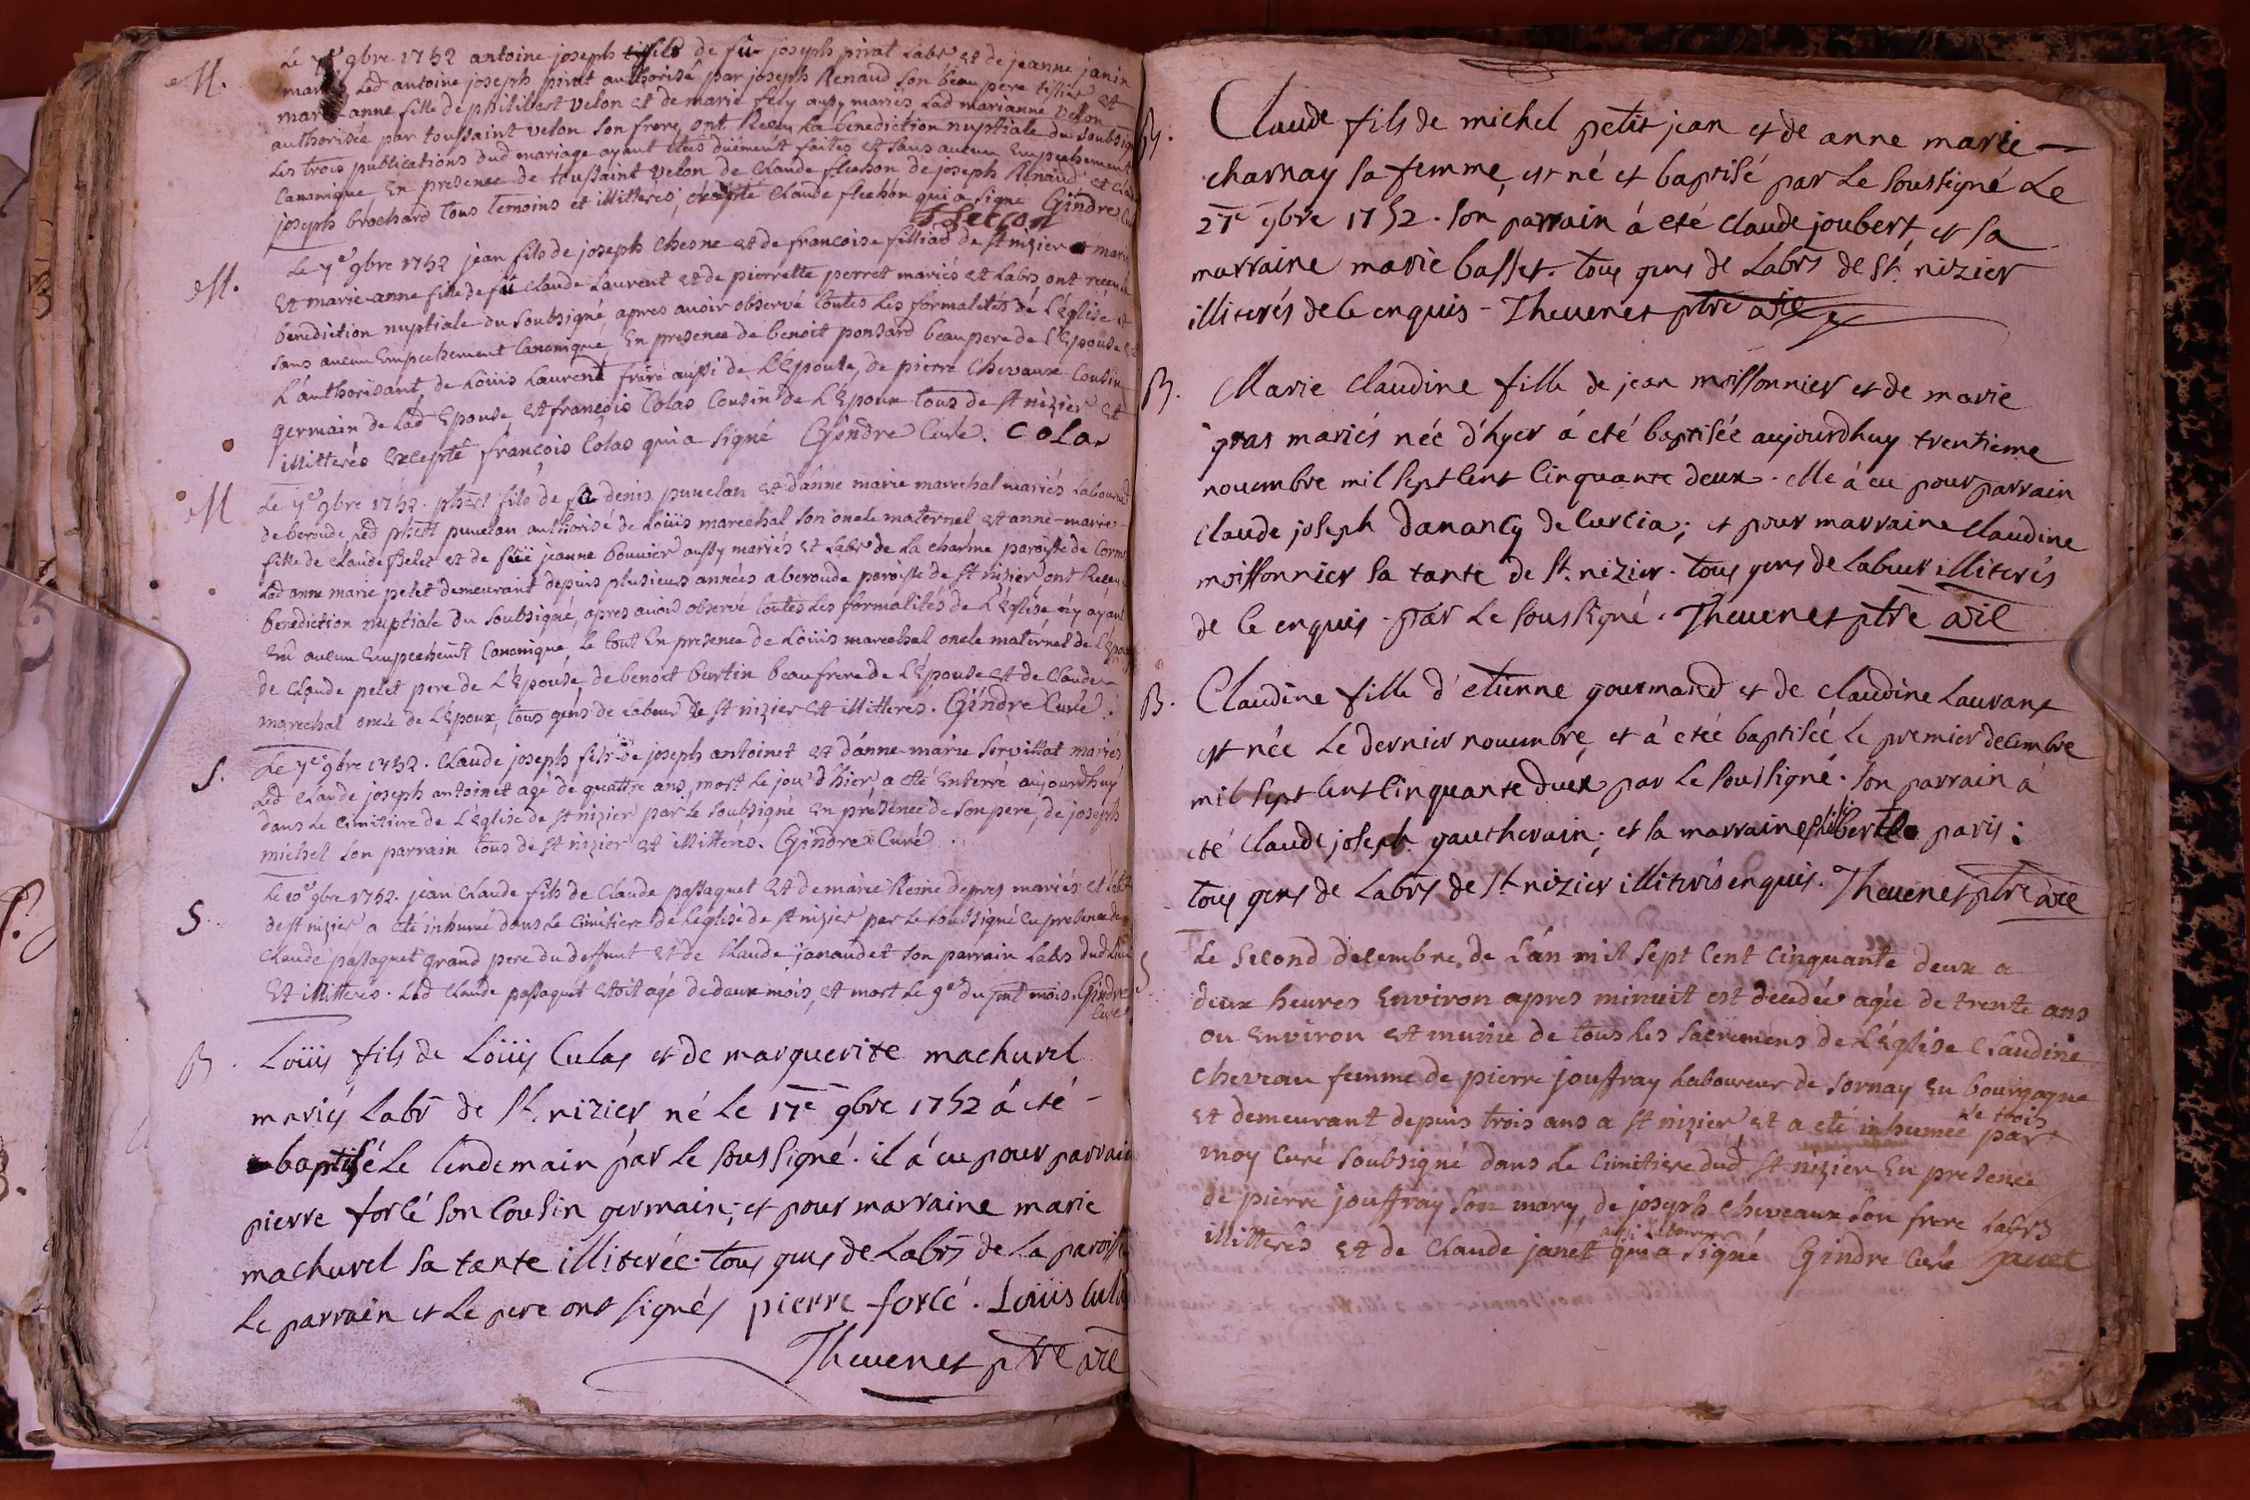 M.
Le 7e 9bre 1752 antoine joseph fils de fû joseph pirat Labr et de jeanne janin
Led antoine joseph pirat authorisé par joseph Renaud son beau pere et
anne fille de philibert velon et de marie fely aussy mariés Lad marianne velon
authorisée par toussaint velon son frere, ont Receu La benediction nuptiale du soubsigné
Les trois publications dud mariage ayant étés duëment faites et sans aucun Empechement
Canonique En presence de toussaint velon de Claude flechon de joseph Renaud et
joseph brochard tous temoins et illitterés, excepté Claude flechon qui a signe Gindre Curé
flechon
M.
Le 7e 9bre 1752 jean fils de joseph Chesne et de francoise filliad de st nizier mariés
Et marie-anne fille de fû Claude Laurent et de pierrette perret mariés et Labrs ont receu la
benediction nuptiale du Soubsigné apres avoir observé toutes les formalités de L'église et
sans aucun Empechement Canonique, En presence de benoit ponsard beaupere de L'Epouse
L'authorisant de Loüis Laurent frere aussi de L'Epouse, de pierre Chevaux Cousin
germain de Lad Epouse, et françois Colas Cousin de L'Epoux tous de st nizier et
illitterés Excepté françois Colas qui a signé Gindre Curé. Colas
M
Le 7e 9bre 1752. phbt fils de fû denis puvelan et d'anne marie marechal mariés Laboureurs
de beroude Led phbt puvelan authorisé de Loüis marechal son oncle maternel et anne-marie
fille de Claude pelet et de füe jeanne bouvier aussy mariés et Labrs de La charme paroisse de
Lad anne marie pelet demeurant depuis plusieurs années a beroude paroisse de st nizier ont Receu la
benediction nuptiale du Soubsigné, apres avoir observé toutes Les formalités de L'Eglise n'y ayant
Eu aucun Empechemt Canonique, Le tout En presence de Loüis marechal oncle maternel de L'époux
de Claude pelet pere de L'Epouse, de benoit burtin beaufrere de L'Epouse et de Claude
marechal oncle de L'Epoux, tous gens de Labeur de st nizier et illitteres. Gindre Curé.
S.
Le 7e 9bre 1752. Claude joseph fils de joseph antoinet et d'anne-marie servillat mariés
Led Claude joseph antoinet agé de quattre ans, mort le jour d'hier, a eté Enterré aujourdhuy
dans Le Cimitiere de L'Eglise de st nizier par le soubsigné En presence de son pere, de joseph
michel son parrain tous de st nizier et illitteres. Gindre Curé.
S.
Le 10e 9bre 1752. jean Claude fils de Claude passaquet et de marie Reine mariés et Labrs
de st nizier a eté inhumé dans Le Cimitiere de Leglise de st nizier par Le soubsigné En presence de
Claude passaquet grand pere du deffunt et de Claude janaudet son parrain Labrs dud
et illitteres. Led Claude passaquet etoit agé de deux mois, et mort Le 9e du pnt mois. Gindre
Curé
B.
Loüis fils de Loüis Culas et de marguerite machurel
mariés Labrs de St. nizier né le 17e 9bre 1752 à été
baptisé Le lendemain par Le soussigné. il à eu pour parrain
pierre forcé son Cousin germain; et pour marraine marie
machurel sa tante illiterée. tous gens de Labrs de La paroisse
Le parrain et Le pere ont signés pierre forcé. Loüis Culas
Thevenet ptre vic
B.
Claude fils de michel petit jean et de anne marie
charnay sa femme, est né et baptisé par Le soussigné Le
27e 9bre 1752. Son parrain à eté Claude joubert, et sa
marraine marie basset. tous gens de Labrs de St. nizier
illiterés de ce enquis - Thevenet ptre vic
B.
Marie Claudine fille de jean moissonnier et de marie
gras mariés née d'hyer á eté baptisée aujourdhuy trentieme
novembre mil Sept Cent Cinquante deux. elle á eu pour parrain
Claude joseph Danancy de Curcia; et pour marraine Claudine
moissonnier sa tante de St. nizier. tous gens de Labeur illiterés
de ce enquis. par Le soussigné. Thevenet ptre vic
B.
Claudine fille d'etienne gourmand et de Claudine Laurant
est née Le dernier novembre, et à eteé baptiséé Le premier decembre
mil sept Cent Cinquante deux par Le soussigné. Son parrain a
eté Claude joseph gautherain; et sa marraine philiberte paris:
tous gens de Labrs de St. nizier illiterés enquis. Thevenet ptre vic
S
Le second decembre de L'an mil sept Cent Cinquante deux a
deux heures Environ apres minuit est decedée agée de trente ans
ou Environ et munie de tous les sacremens de L'Eglise Claudine
Chevrau femme de pierre jouffray Laboureur de Sornay En bourgogne
et demeurant depuis trois ans a st nizier et a eté inhumée par
moy Curé Soubsigné dans Le Cimitiere dud st nizier En presence
de pierre jouffray son mary, de joseph cheveaux son frere Labrs
illitteres et de Claude janet qui a signé Gindre Curé